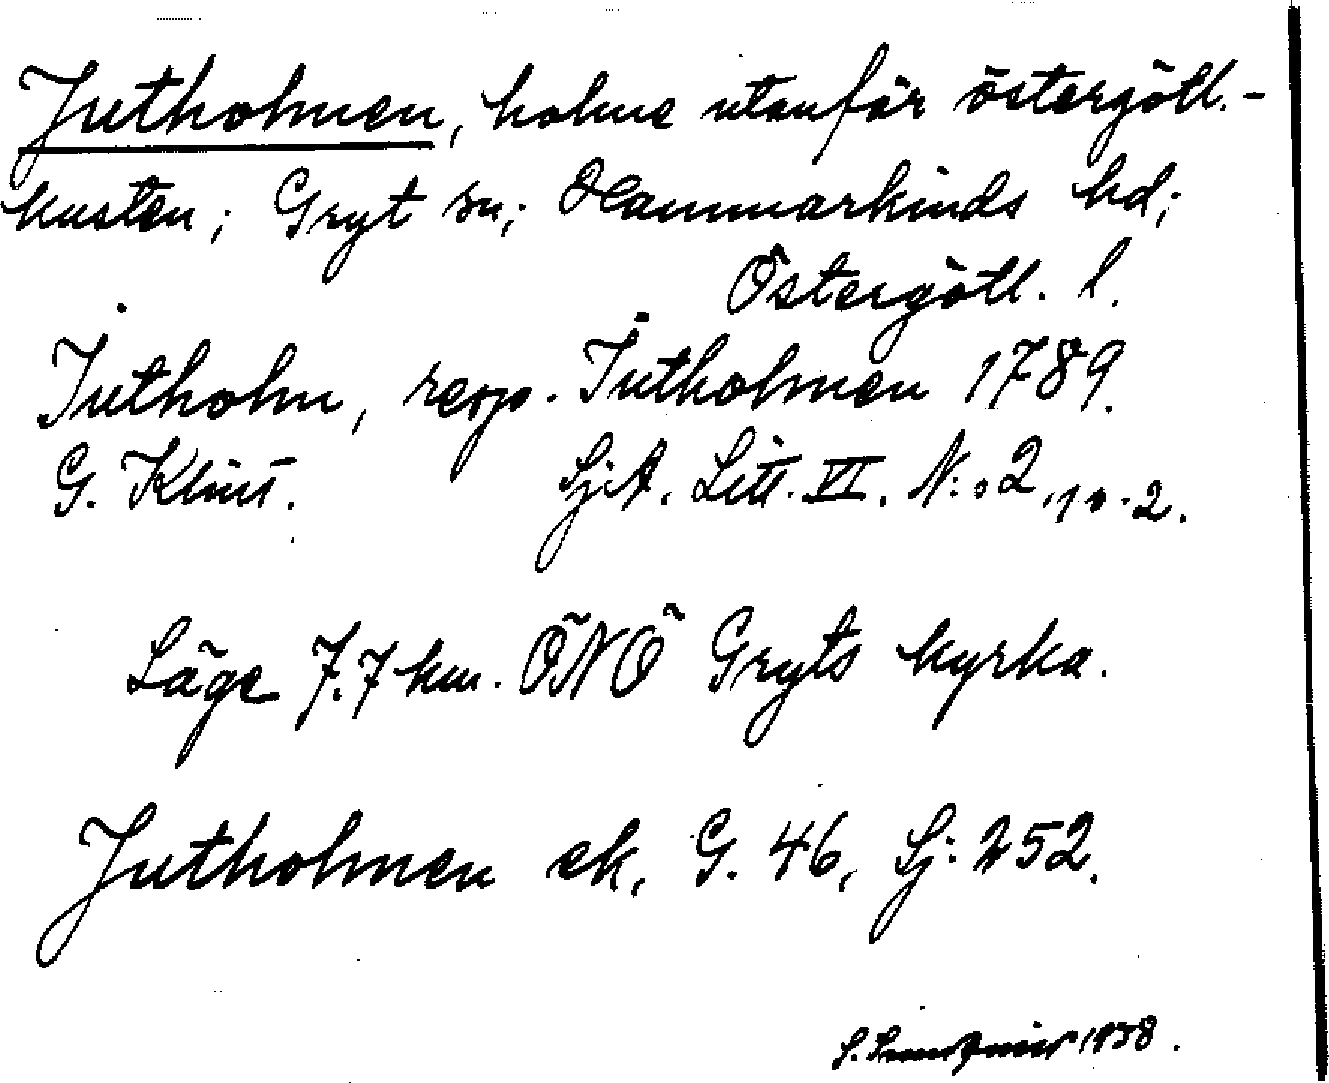 Jutholmen, holme utanför östergötl.-
kusten; Gryt sn; Hammarkinds hd;
Östergötl. l.
Jutholm, resp. Jutholmen 1789.
G. Klint. SjA. Litt. VI. N:o 2, 10-2.
Läge 7.7 km. ÖNÖ Gryts kyrka.
Jutholmen ek. G. 46, Sj: 252.
S. 1938.